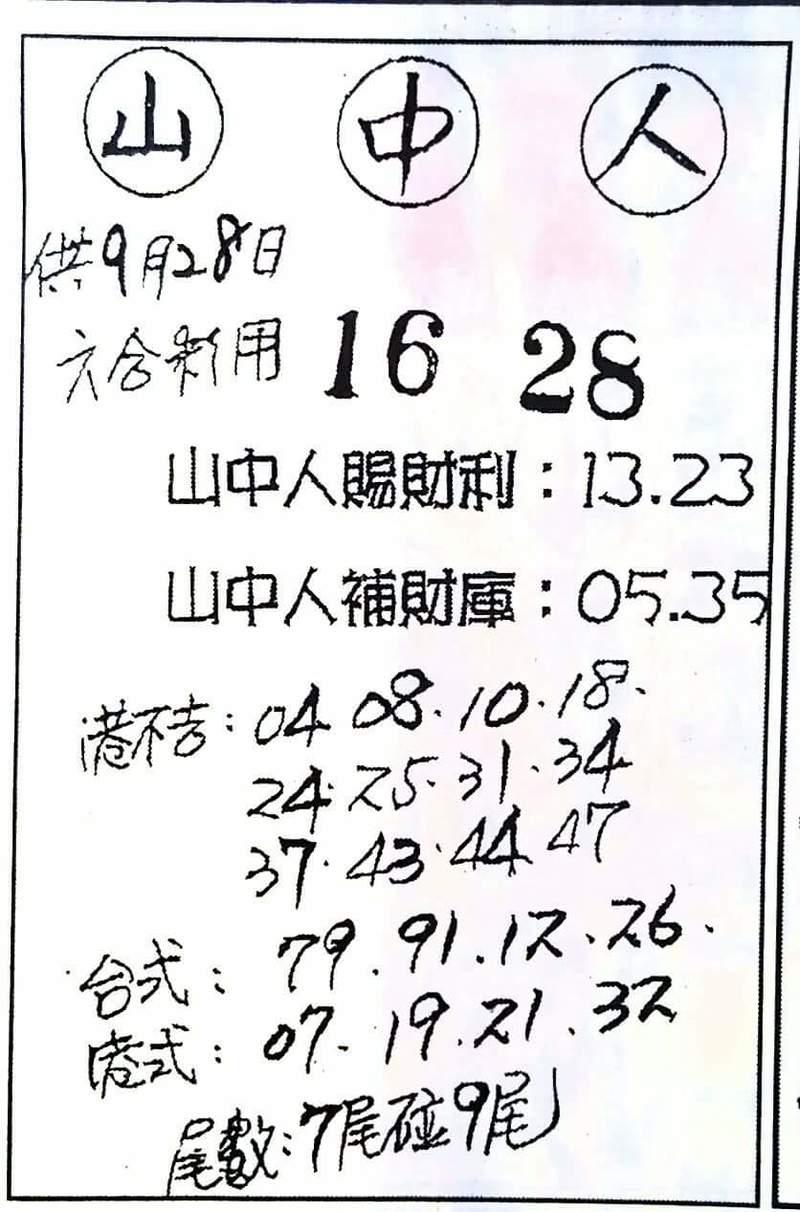 山 中 人
供9月28日
六合彩用 16 28
山中人賜財利：13.23
山中人補財庫：05.35
港不吉：04.08.10.18.
24.25.31.34
37.43.44.47
台式：79.91.12.26.
港式：07.19.21.32
尾數：7尾碰9尾